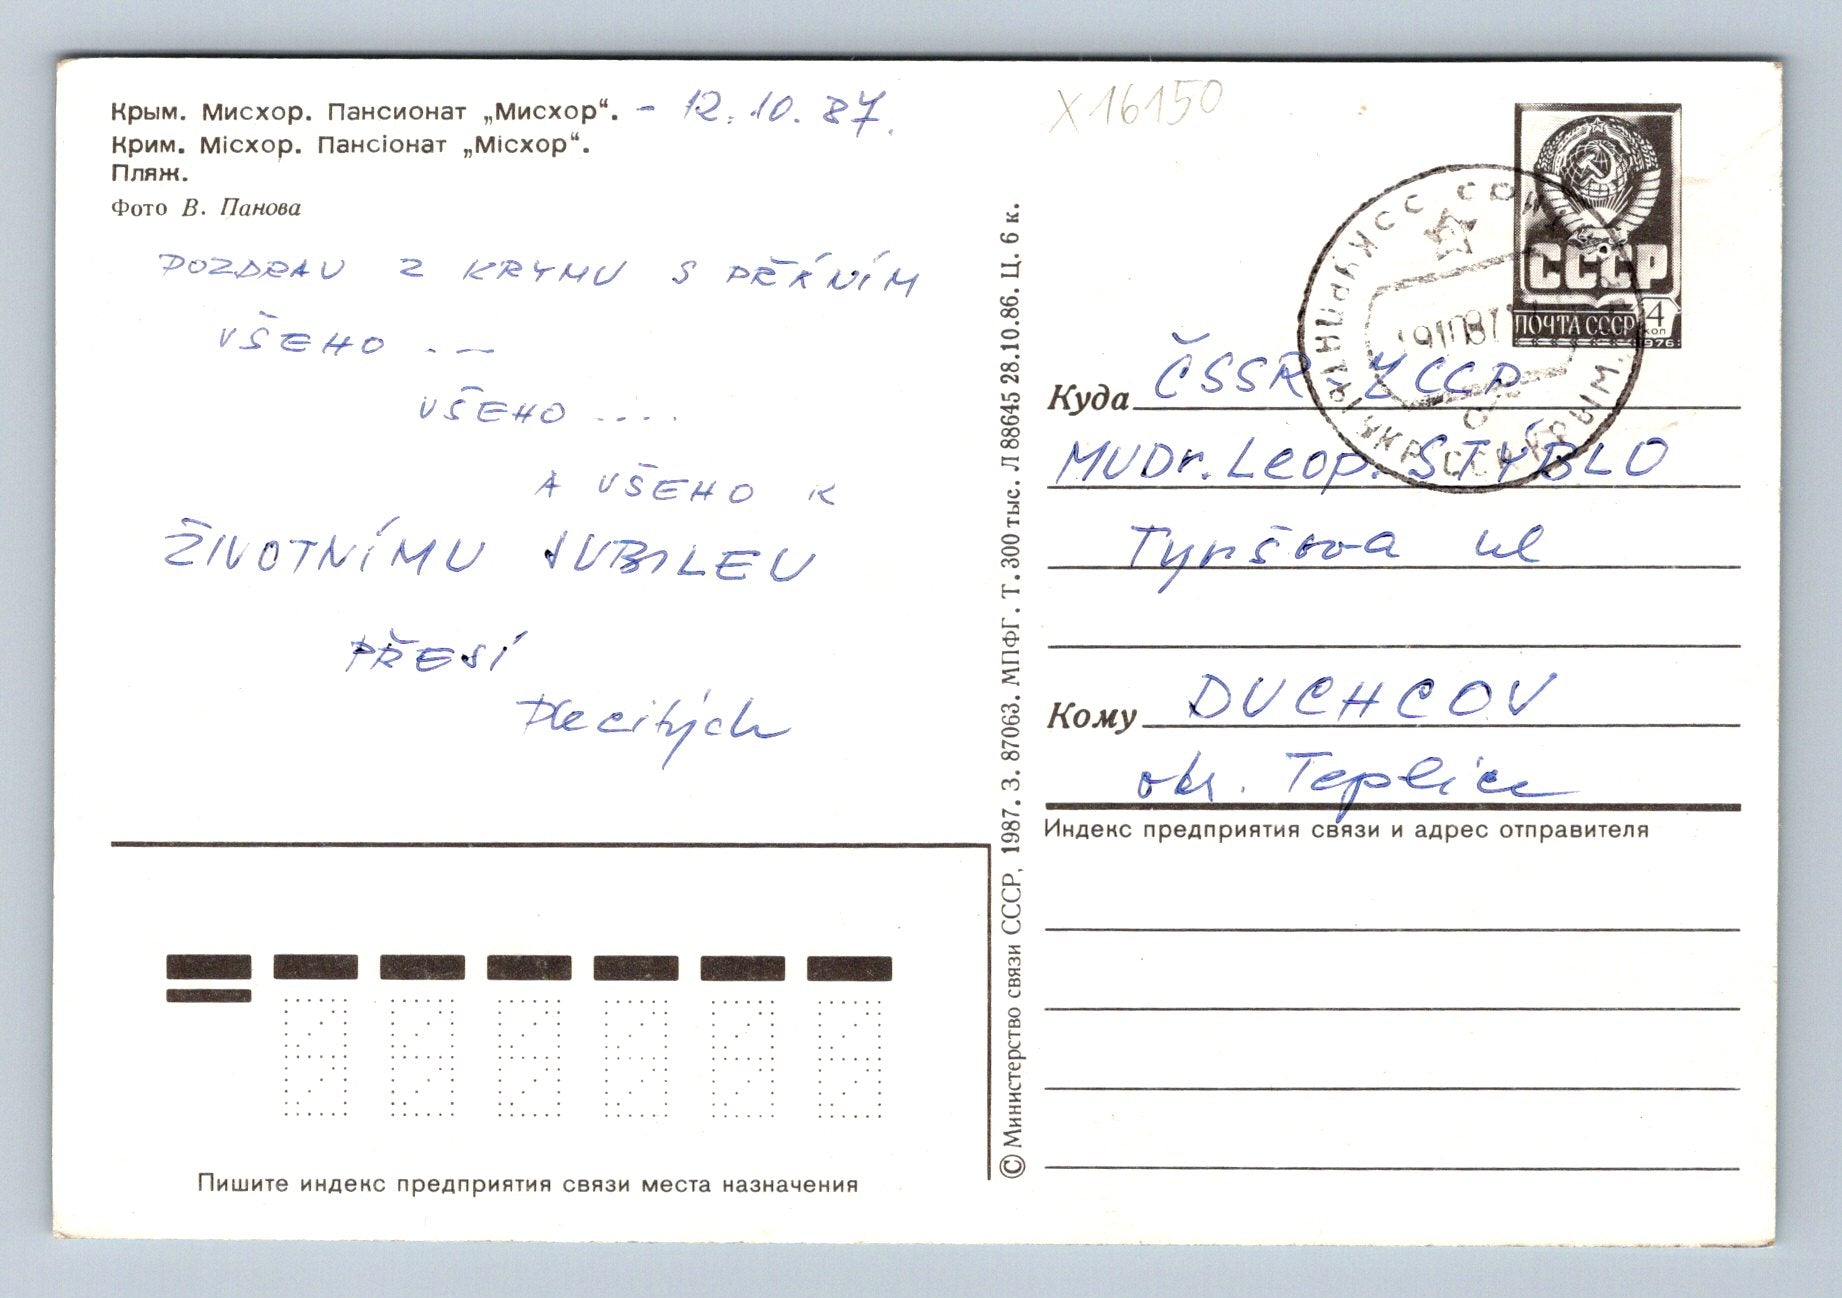 Крым. Мисхор. Пансионат „Мисхор“. - 12.10.87.
Крим. Місхор. Пансіонат „Місхор“.
Пляж.
Фото В. Панова
POZDRAV Z KRYMU S PŘÁNÍM
VŠEHO . —
VŠEHO ....
A VŠEHO K
ŽIVOTNÍMU JUBILEU
PŘEJÍ
Пишите индекс предприятия связи места назначения
© Министерство связи СССР, 1987. З. 87063. МПФГ. Т. 300 тыс. Л 88645 28.10.86. Ц. 6 к.
X16150
СССР
ПОЧТА СССР
4
коп
1976
Куда ČSSR
MUDr. Leop. STÝBLO
Tyršova ul
Кому DUCHCOV
okr. Teplice
Индекс предприятия связи и адрес отправителя